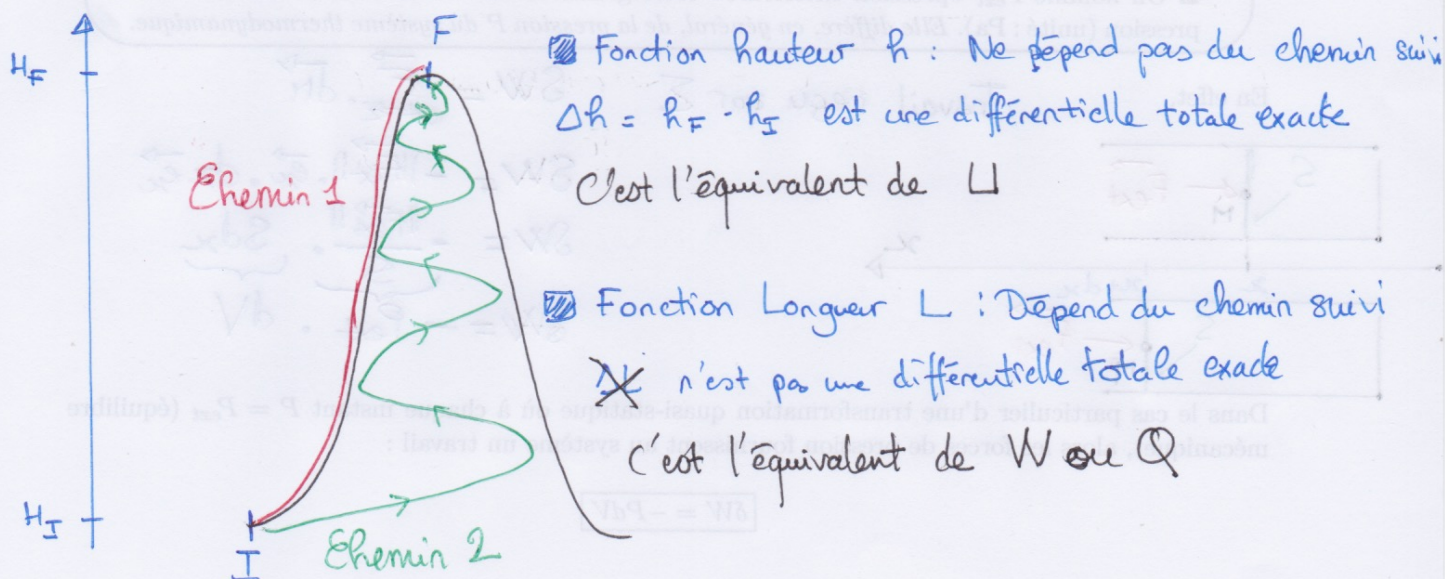 F
H_F
Fonction hauteur h : Ne dépend pas du chemin suivi
Δh = h_F - h_I est une différentielle totale exacte
Chemin 1
C'est l'équivalent de U
Fonction Longueur L : Dépend du chemin suivi
ΔL n'est pas une différentielle totale exacte
C'est l'équivalent de W ou Q
H_I
I
Chemin 2